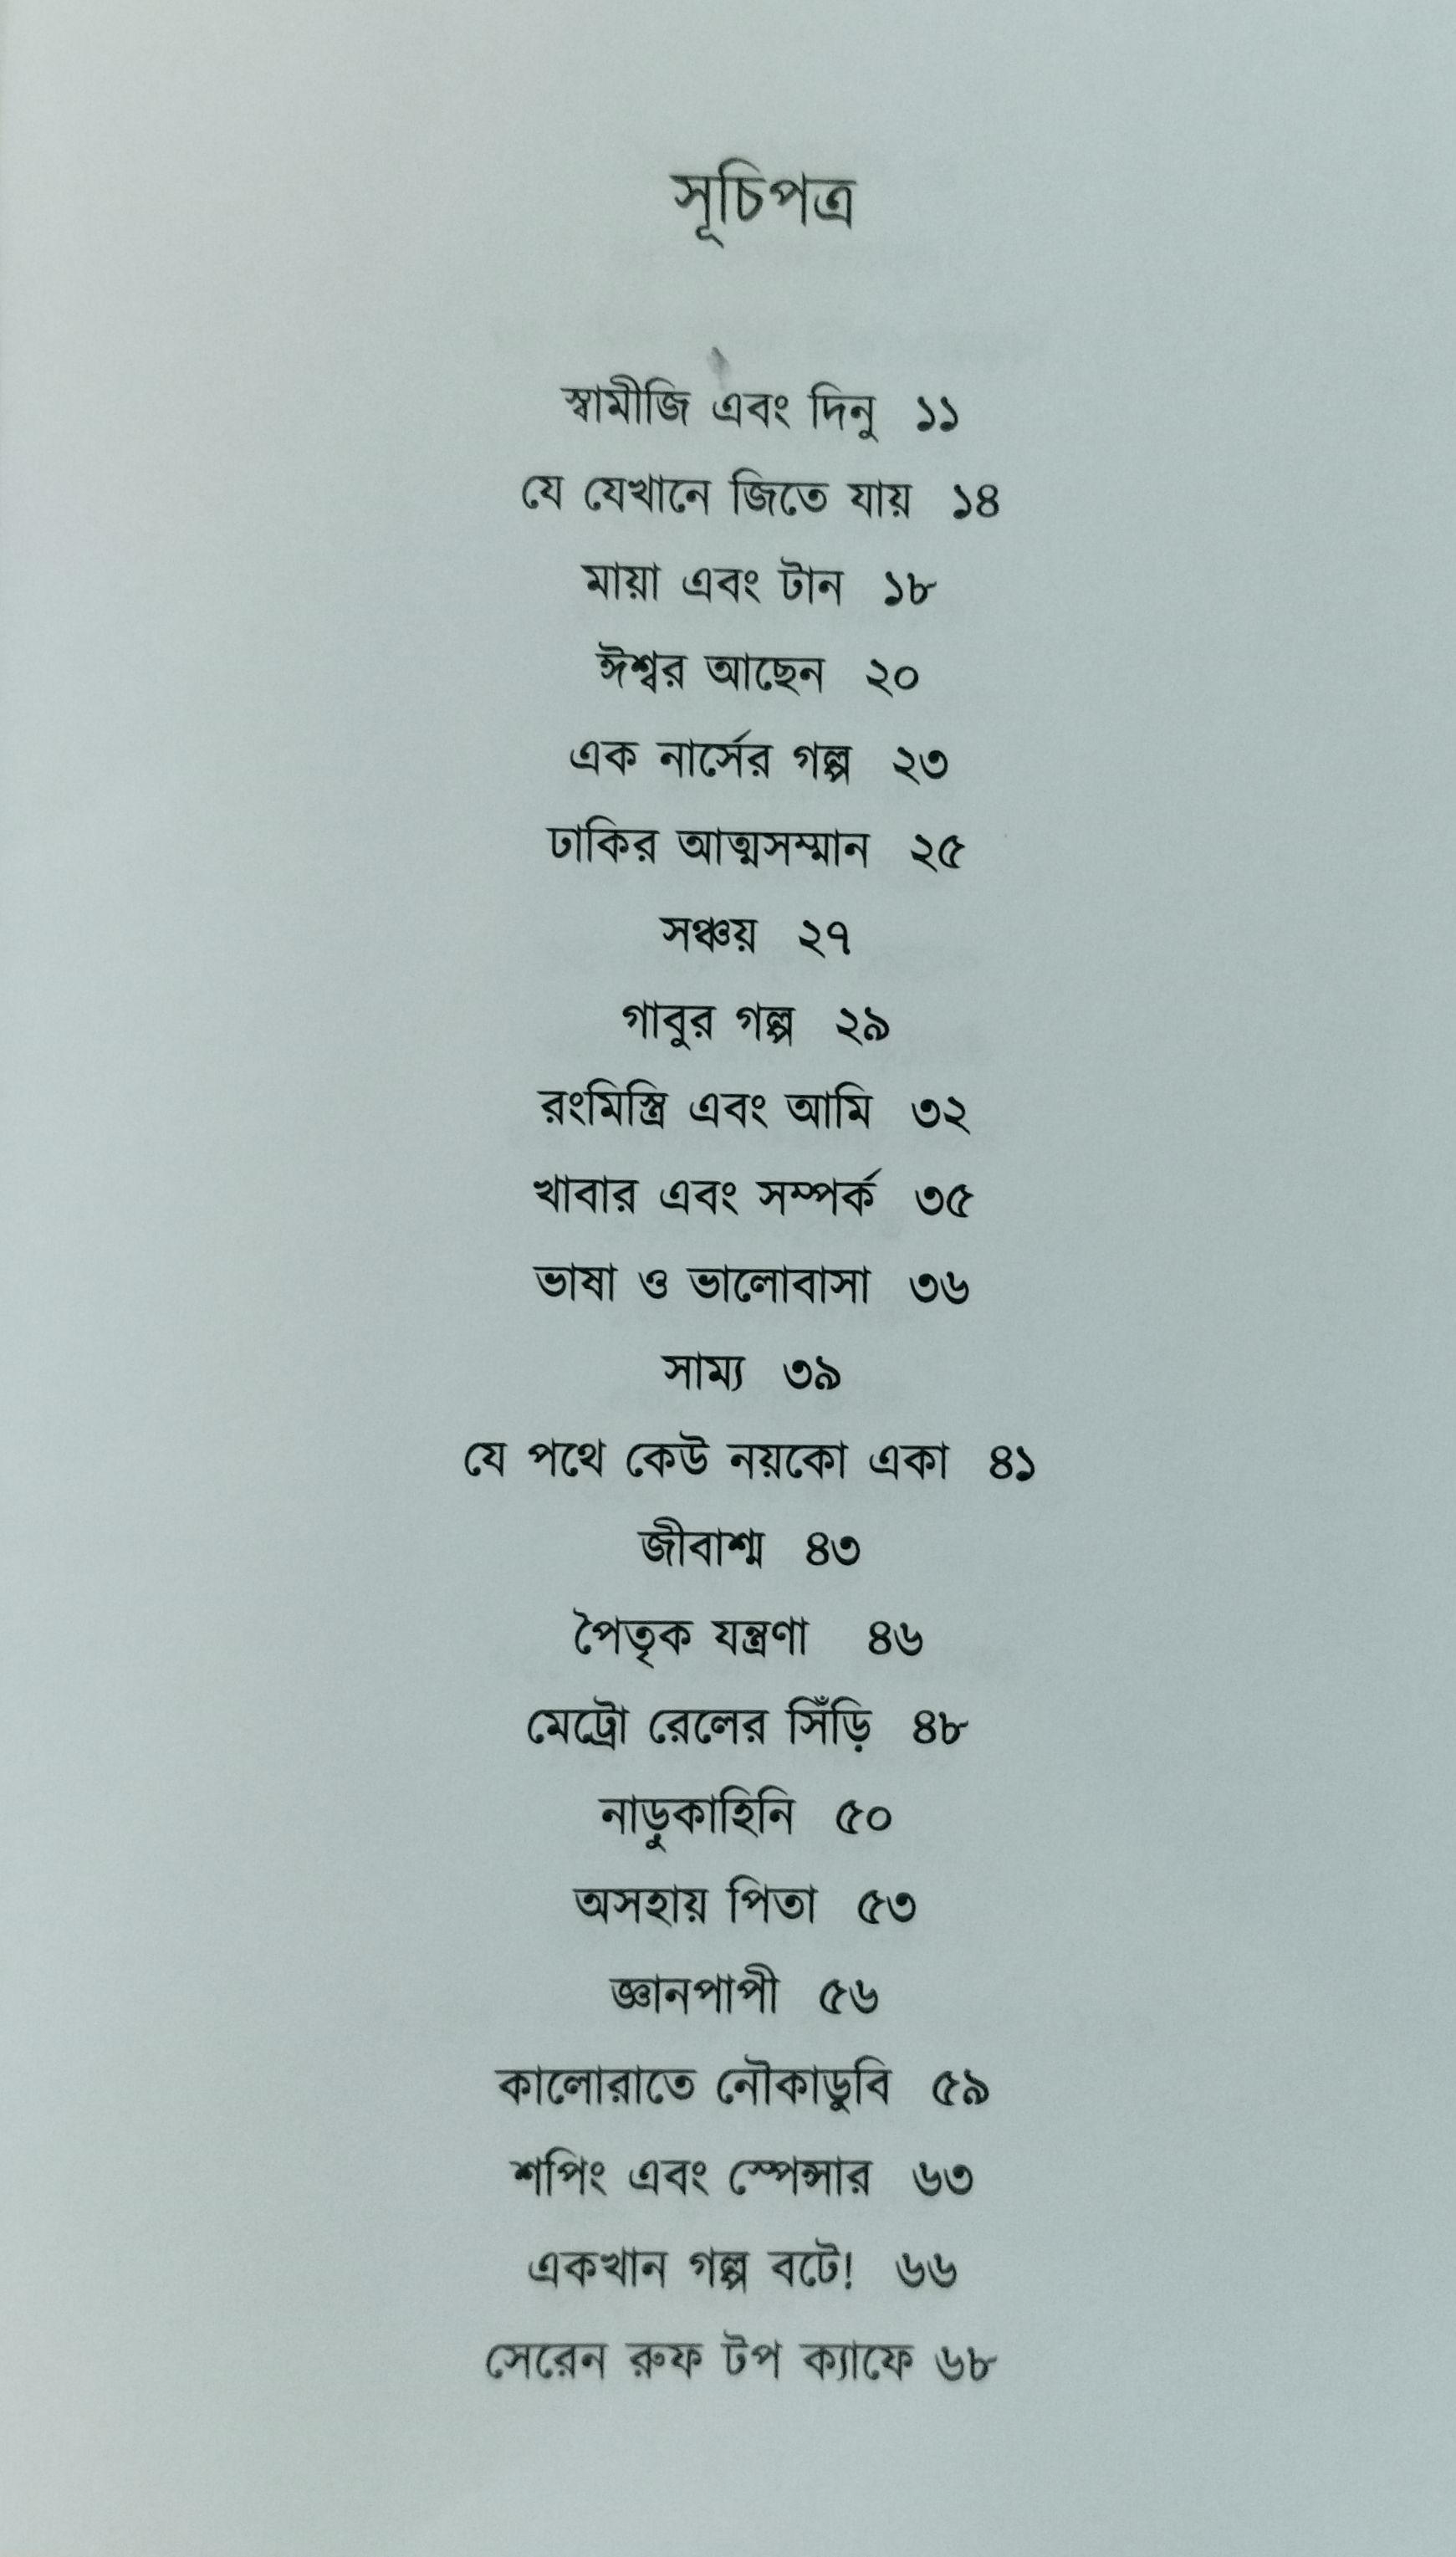 সূচিপত্র
স্বামীজি এবং দিনু ১১
যে যেখানে জিতে যায় ১৪
মায়া এবং টান ১৮
ঈশ্বর আছেন ২০
এক নার্সের গল্প ২৩
ঢাকির আত্মসম্মান ২৫
সঞ্চয় ২৭
গাবুর গল্প ২৯
রংমিস্ত্রি এবং আমি ৩২
খাবার এবং সম্পর্ক ৩৫
ভাষা ও ভালোবাসা ৩৬
সাম্য ৩৯
যে পথে কেউ নয়কো একা ৪১
জীবাশ্ম ৪৩
পৈতৃক যন্ত্রণা ৪৬
মেট্রো রেলের সিঁড়ি ৪৮
নাড়ুকাহিনি ৫০
অসহায় পিতা ৫৩
জ্ঞানপাপী ৫৬
কালোরাতে নৌকাডুবি ৫৯
শপিং এবং স্পেন্সার ৬৩
একখান গল্প বটে! ৬৬
সেরেন রুফ টপ ক্যাফে ৬৮